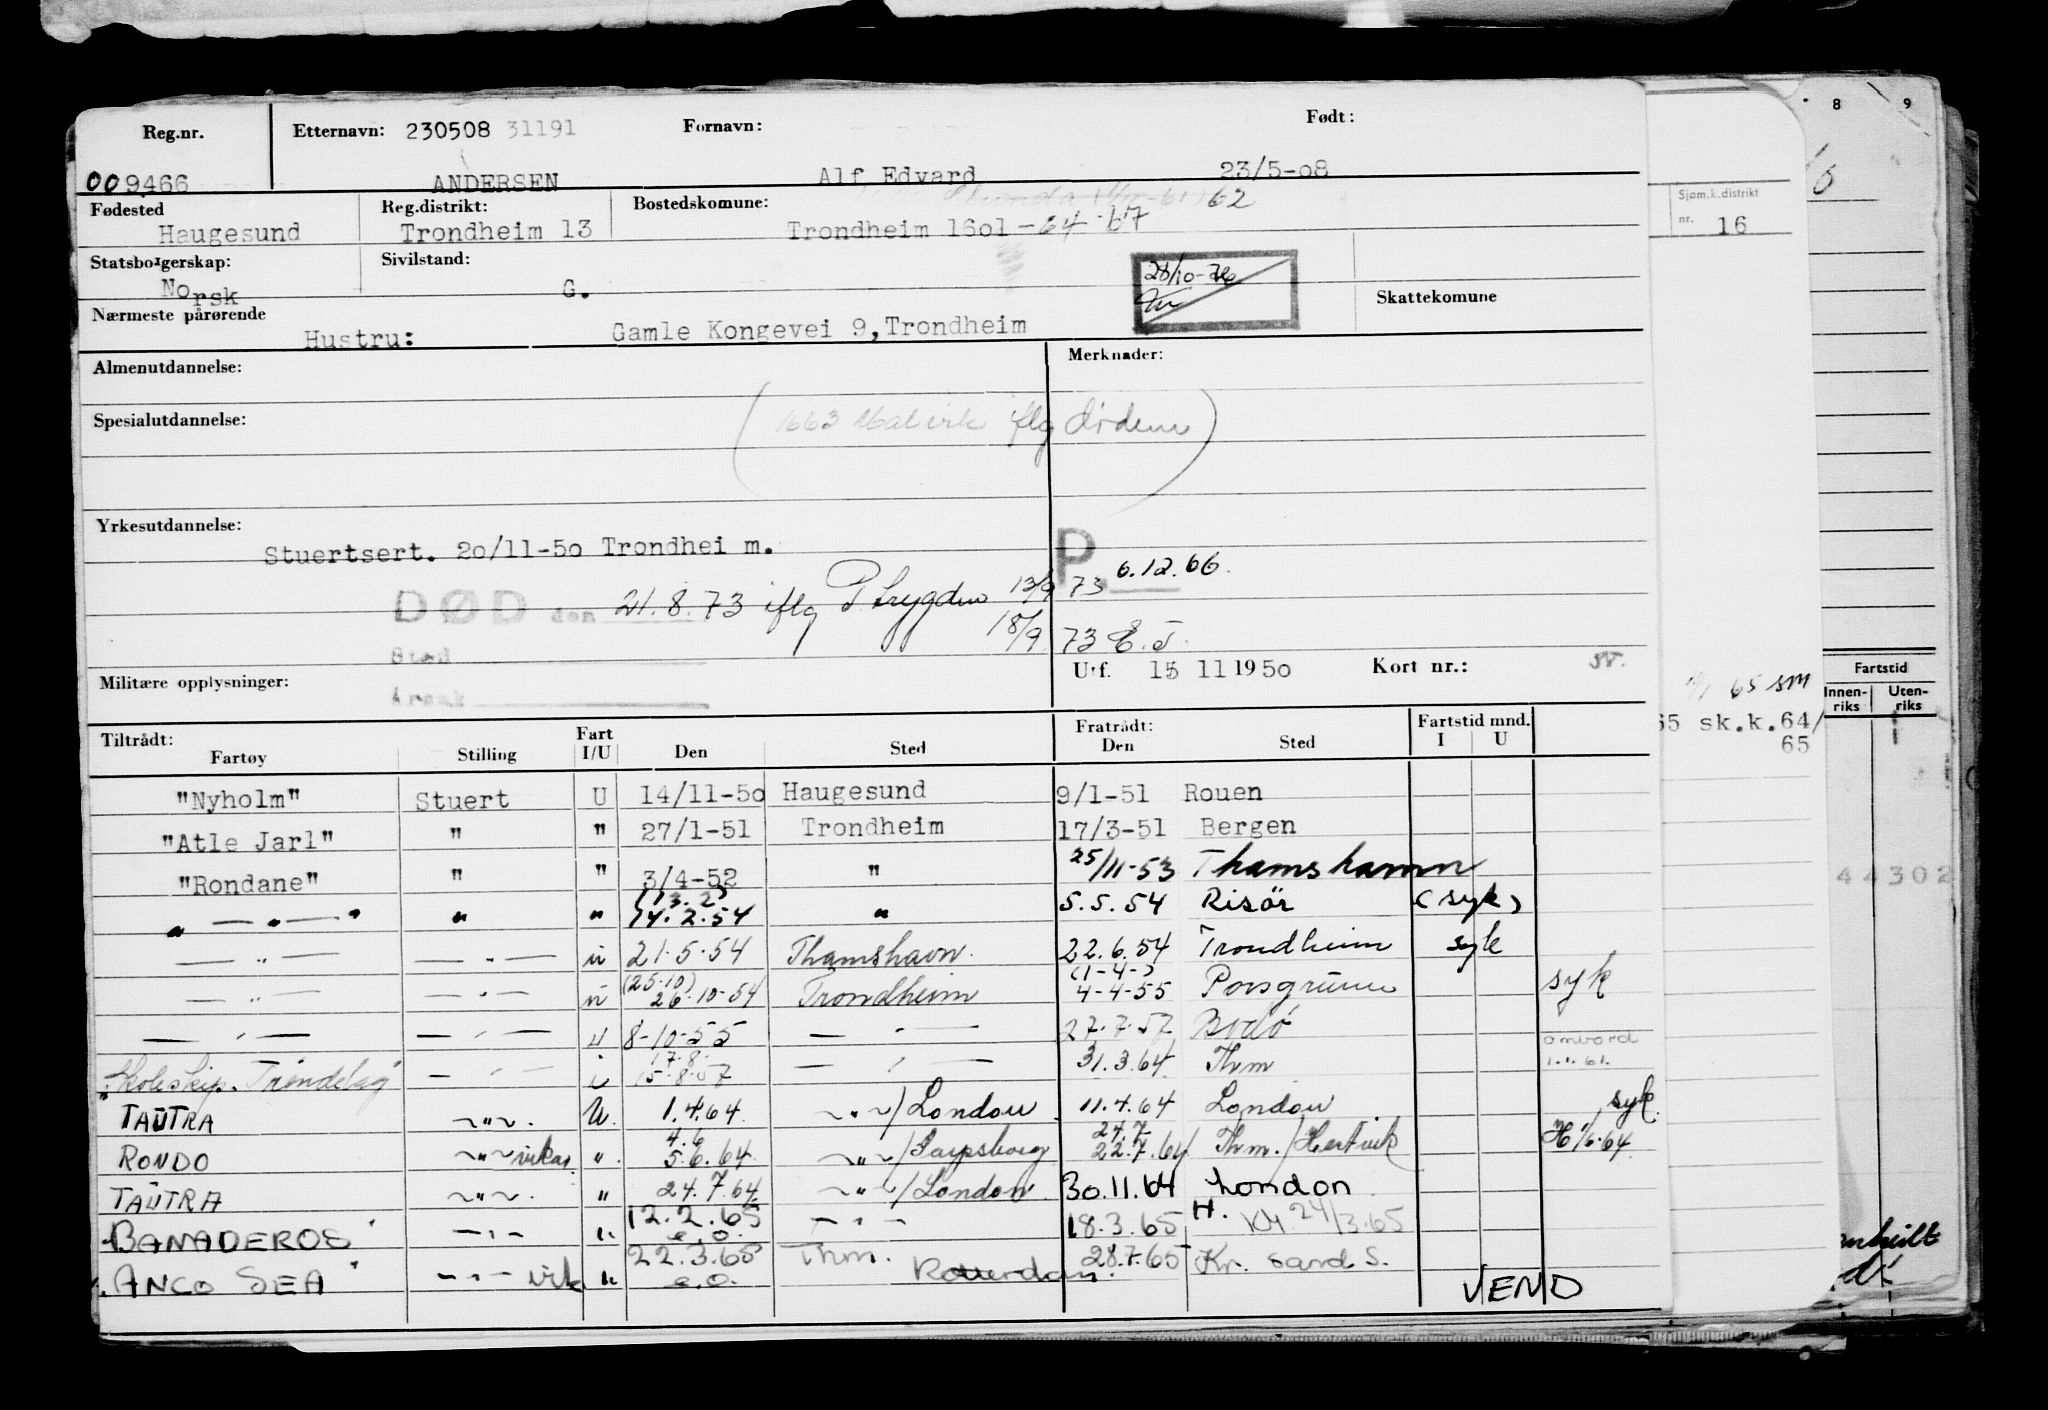 Reg.nr. Etternavn: 230508 31191 Fornavn: Født:
009466 ANDERSEN Alf Edvard 23/5-08
Fødested Reg.distrikt: Bostedskomune: 62
Haugesund Trondheim 13 Trondheim 1601 -64-67
Statsborgerskap: Sivilstand: 28/10-76
Norsk G. Skattekomune
Nærmeste pårørende
Hustru: Gamle Kongevei 9, Trondheim
Almenutdannelse: Merknader:
Spesialutdannelse: (1663 Malvik iflg )
Yrkesutdannelse:
Stuertsert. 20/11-50 Trondhei m. P. 6.12.66.
DØD den 21.8.73 iflg P trygden 13/9 73
Sted 18/9 73
Militære opplysninger: Årsak Utf. 15 11 1950 Kort nr.:
Tiltrådt: Fratrådt: Fartstid mnd.
Fartøy Stilling Fart I/U Den Sted Den Sted I U
"Nyholm" Stuert U 14/11-50 Haugesund 9/1-51 Rouen
"Atle Jarl" " " 27/1-51 Trondheim 17/3-51 Bergen
"Rondane" " " 3/4-52 " 25/11-53 Thamshamn
" — " — " " " (13.2) 14.2.54 " 5.5.54 Risör (syk)
— " — — " — " 21.5.54 Thamshavn. 22.6.54 Trondheim syk
— " — — " — " (25.10) 26.10-54 Trondheim (1-4-) 4-4-55 Porsgrunn syk
— " — — " — " 8-10-55 — " — 27.7.57 Bodø ombord
"Skoleskip. Trøndelag" — " — i 17.8. 15.8.57 — " — 31.3.64 Thm 1.1.61.
TAUTRA — " — U. 1.4.64. — " — / London 11.4.64 London syk.
RONDO — " — vikar " 4.6 5.6.64. — " — / Sarpsborg 24.7 22.7.64 Thm. / H 1/6-64
TAUTRA — " — " 24.7.64. — " — / London 30.11.64 London
"BANADEROS" — " — " 12.2.65 e.o. — " — 18.3.65 H. 24/3.65
"ANCO SEA" — " — vik " 22.3.65 e.o. Thm. Rotterdam. 28.7.65 Kr. sand S.
VEND
8 9
Sjøm.k.distrikt
nr. 16
Fartstid
Innen-riks Uten-riks
65 sm
65 sk.k.64/
65
44302